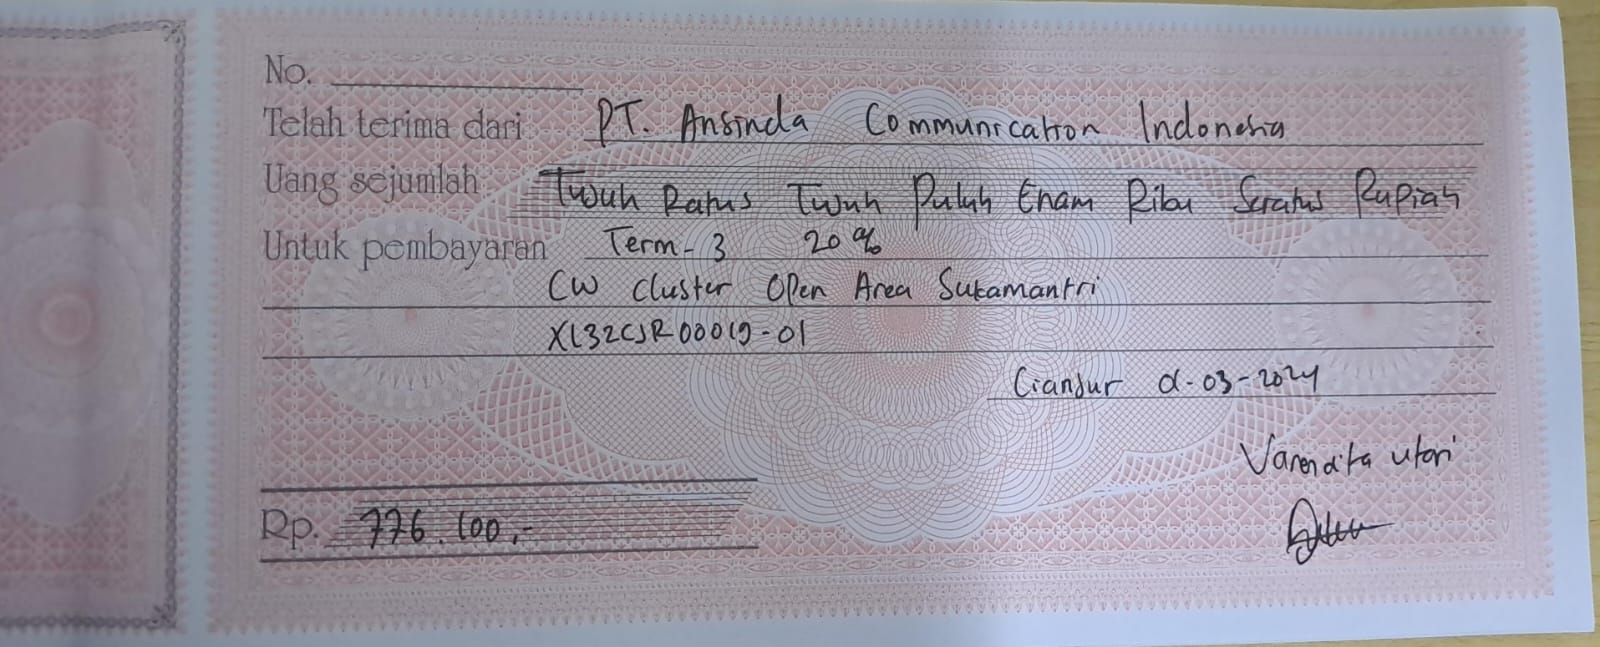 No.
Telah terima dari PT. Ansinda Communication Indonesia
Uang sejumlah Tujuh Ratus Tujuh Puluh Enam Ribu Seratus Rupiah
Untuk pembayaran Term-3 20%
CW Cluster Open Area Sukamantri
XL32CJR00019-01
Cianjur 01-03-2024
Varendita utari
Rp. 776.100,-